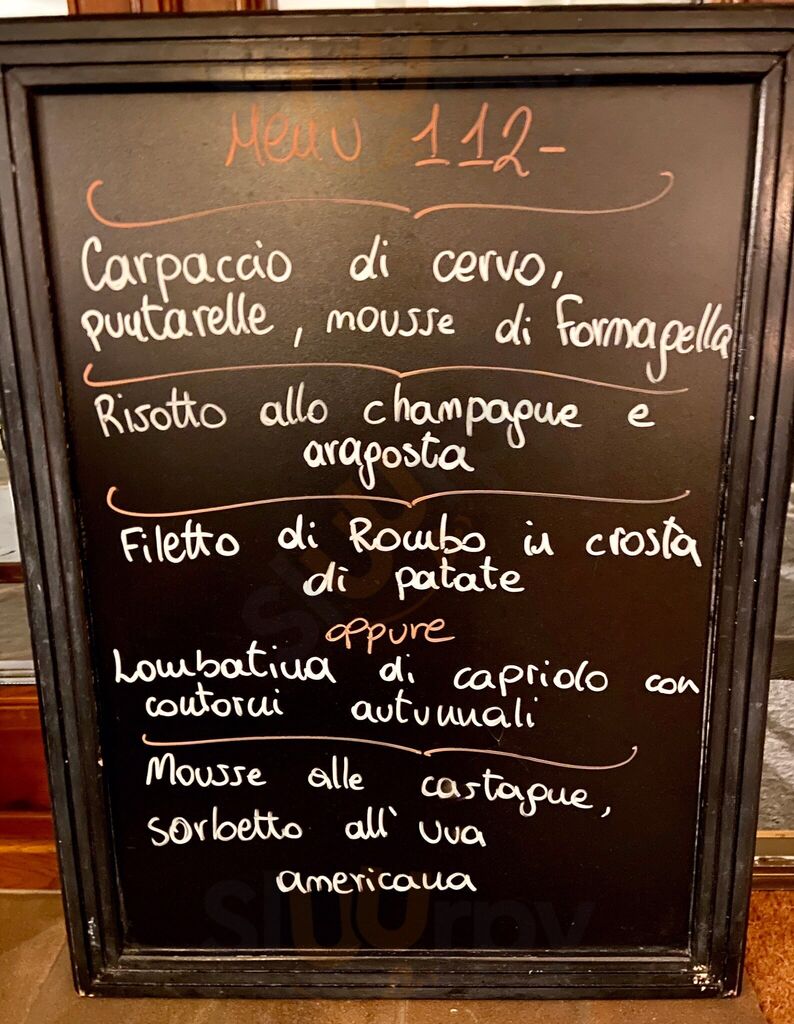 Menu 112-
Carpaccio di cervo,
puntarelle, mousse di Formagella
Risotto allo champagne e
aragosta
Filetto di Rombo in crosta
di patate
oppure
Lombatina di capriolo con
contorni autunnali
Mousse alle castagne,
sorbetto all' uva
americana
sluurpy